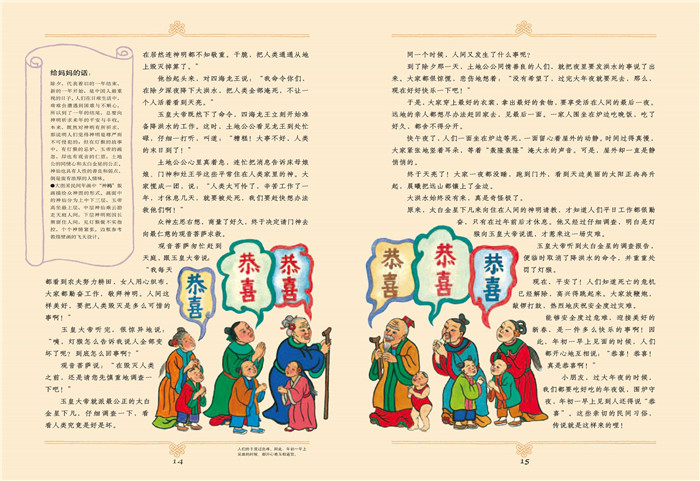 给妈妈的话：
除夕，代表着旧的一年结束，
新的一年开始，是中国人最重
视的日子。人们在日常生活中，
难免会遭遇到困难与不顺心，
所以到了一年的结尾，总要向
神明祈求来年的平安与丰收。
本来，既然对神明有所祈求，
在居然连神明都不知敬重，干脆，把人类通通从地
上毁灭掉算了。”
他抬起头来，对四海龙王说：“我命令你们，
在除夕深夜降下大洪水，把人类全部淹死，不让一
个人活着看到天亮。”
玉皇大帝既然下了命令，四海龙王立刻开始准
备降洪水的工作。这时，土地公公看见龙王到处忙
碌，仔细一打听，叫道：“糟糕！大事不好，人类
的末日到了！”
土地公公心里真着急，连忙把消息告诉床母娘
娘、门神和灶王爷这些平常住在人类家里的神。大
家慌成一团，说：“人类太可怜了，辛苦工作了一
年，才休息几天，就要被处死，我们要赶快想办法
救他们啊！”
众神左思右想，商量了好久，终于决定请门神去
向最仁慈的观音菩萨求救。
观音菩萨匆忙赶到
天庭，跟玉皇大帝说：
“我每天
都看到农夫努力耕田，女人用心织布，
大家都勤奋工作、敬拜神明。人间这
样美好，要把人类毁灭是多么可惜的
事啊！”
玉皇大帝听完，很惊异地说：
“咦，灯猴怎么告诉我说人全都变
坏了呢？到底怎么回事啊？”
观音菩萨说：“在毁灭人类
之前，还是请您先慎重地调查一
下吧！”
玉皇大帝就派最公正的太白
金星下凡，仔细调查一下，看
看人类究竟是好是坏。
恭喜
恭喜
恭喜
14
同一个时候，人间又发生了什么事呢？
到了除夕那一天，土地公公同情善良的人们，就把夜里要发洪水的事说了出
来。大家都很惊慌，悲伤地想着：“没有希望了，过完大年夜就要死去，那么，
现在好好快乐一下吧！”
于是，大家穿上最好的衣裳，拿出最好的食物，要享受活在人间的最后一夜。
远地的亲人都想尽办法赶回家去，见最后一面，一家人围坐在炉边吃晚饭，吃了
好久，都舍不得分开。
快午夜了，人们一面坐在炉边等死，一面留心着屋外的动静。时间过得真慢，
大家紧张地竖着耳朵，等着“轰隆轰隆”淹大水的声音。可是，屋外却一直是静
悄悄的。
终于天亮了！大家一夜都没睡，跑到门外，看到天边美丽的太阳正冉冉升
起，晨曦把远山都镶上了金边。
大洪水始终没有来，真是奇怪极了。
原来，太白金星下凡来向住在人间的神明请教，才知道人们平日工作都很勤
奋，只有在过年前后才休息。他又经过仔细调查，明白是灯
猴向玉皇大帝说谎，才惹来这一场灾难。
玉皇大帝听到太白金星的调查报告，
便临时取消了降洪水的命令，并重重处
罚了灯猴。
现在，平安了！人们知道死亡的危机
已经解除，高兴得跳起来。大家放鞭炮、
敲锣打鼓，热烈地庆祝安全度过灾难。
能够安全度过危难，迎接美好的
新春，是一件多么快乐的事啊！因
此，年初一早上见面的时候，人们
都开心地互相说：“恭喜！恭喜！
真是恭喜啊！”
小朋友，过大年夜的时候，
我们都要吃好吃的年夜饭、围炉守
夜，年初一早上见到人还得说“恭
喜”。这些亲切的民间习俗，
传说就是这样来的喔！
恭喜
恭喜
恭喜
15